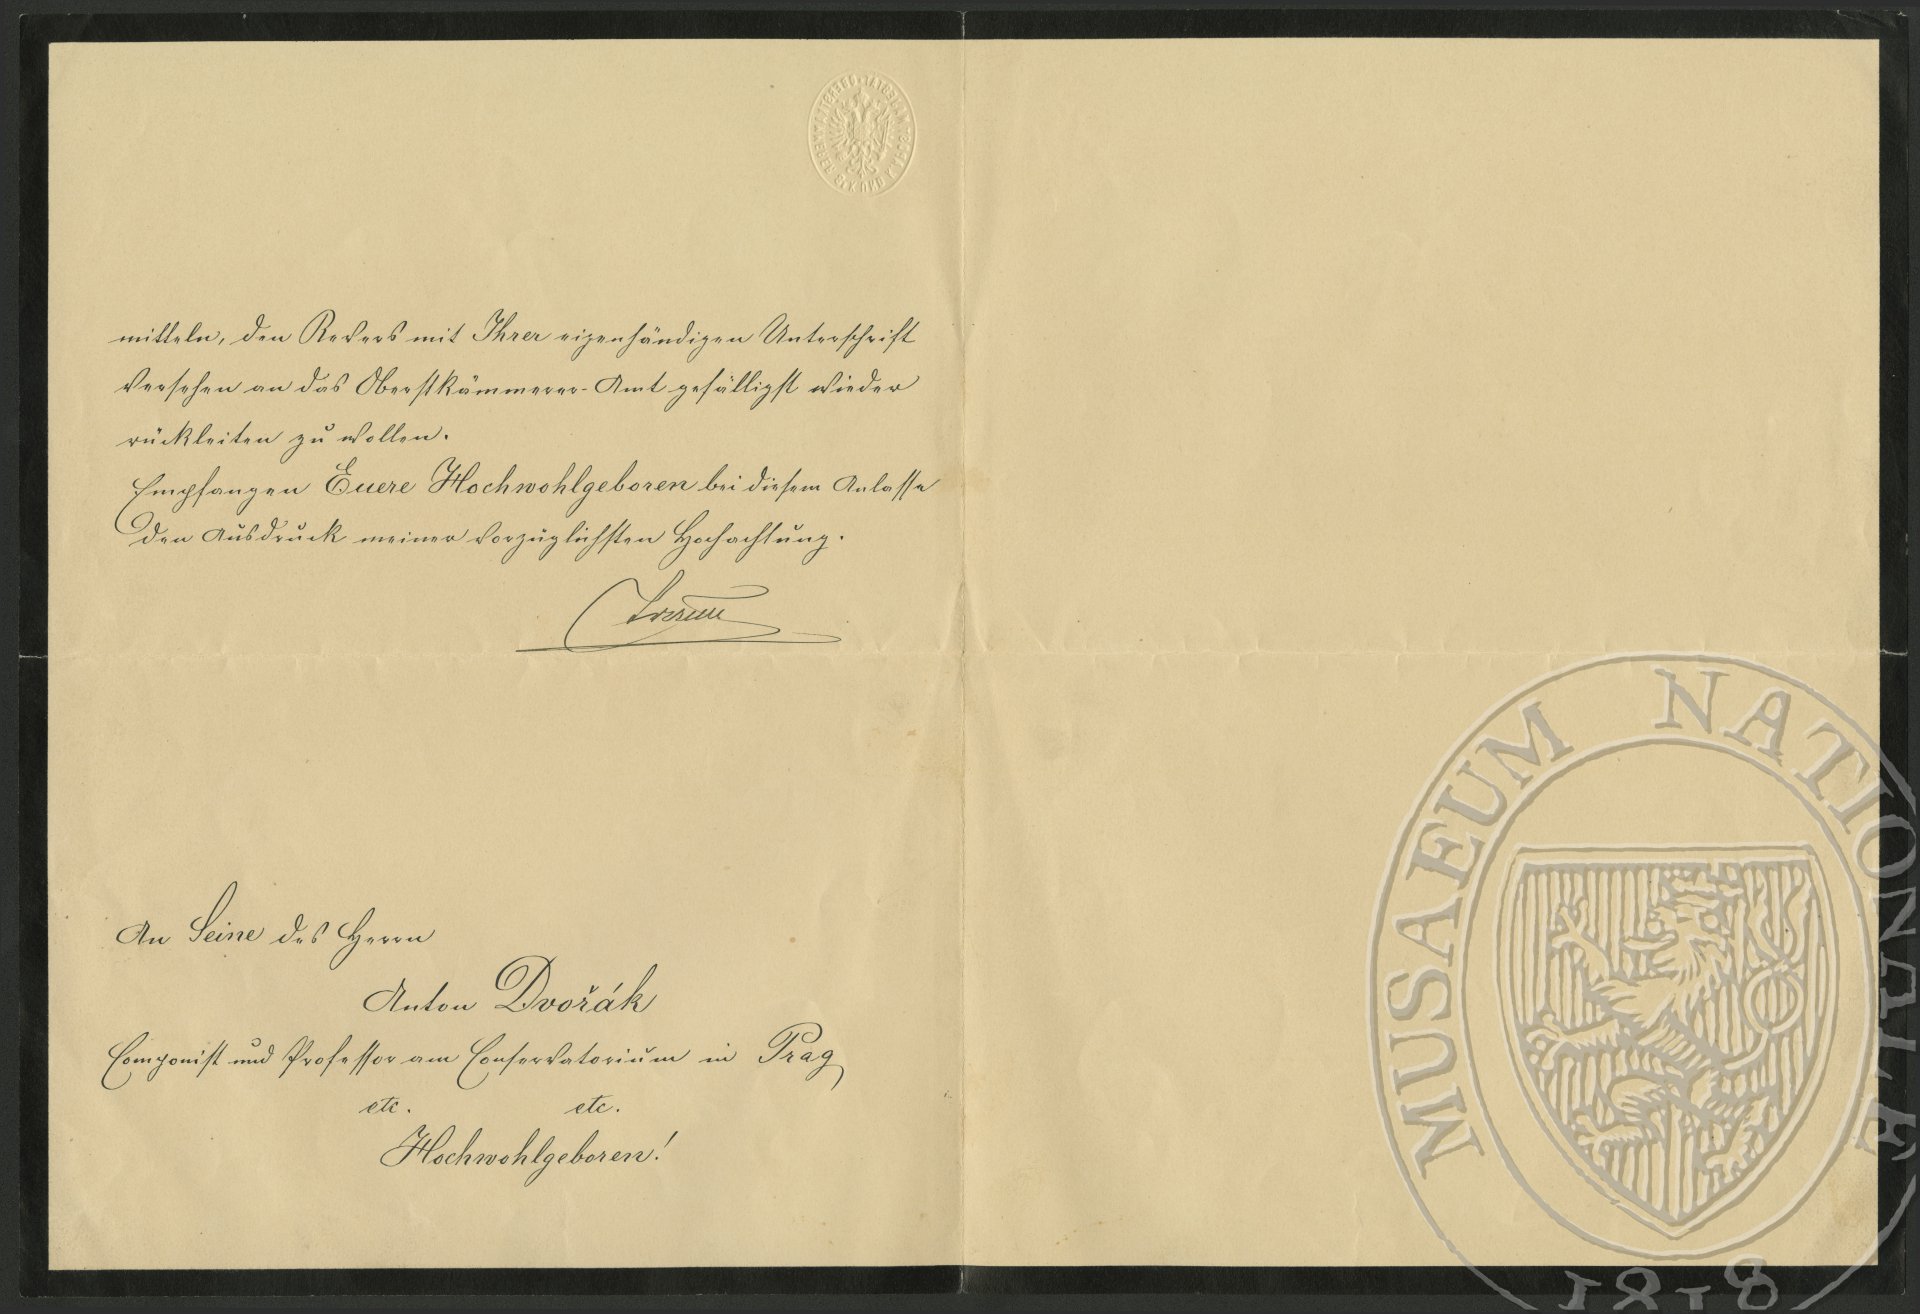 mitteln, den Revers mit Ihrer eigenhändigen Unterschrift
versehen an das Oberstkämmerer-Amt gefälligst wieder
rückleiten zu wollen.
Empfangen Euere Hochwohlgeboren bei diesem Anlasse
den Ausdruck meiner vorzüglichsten Hochachtung.
An Seine des Herrn
Anton Dvořák
Componist und Professor am Conservatorium in Prag
etc. etc.
Hochwohlgeboren!
MUSAEUM NATIONALE
1818